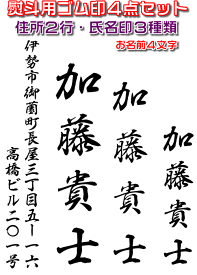 熨斗用ゴム印4点セット
住所2行・氏名印3種類
お名前4文字
加藤貴士
加藤貴士
加藤貴士
伊勢市御薗町長屋三丁目五ー一六
高橋ビル二〇一号